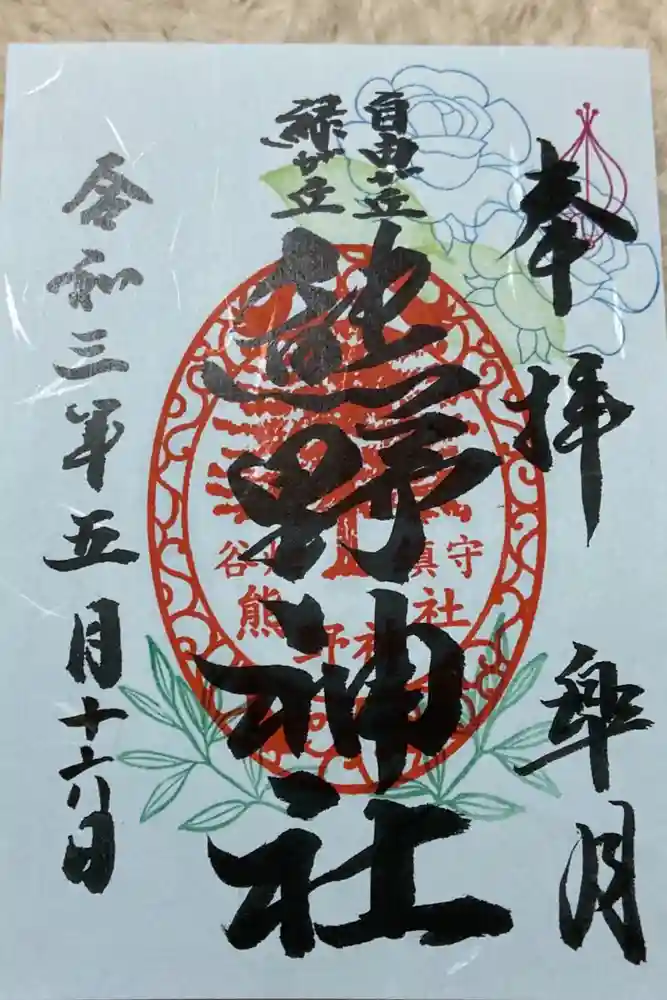 奉拝
皐月
自由が丘
緑が丘
熊野神社
守
鎮
谷
社
神
野
熊
令和三年五月十六日